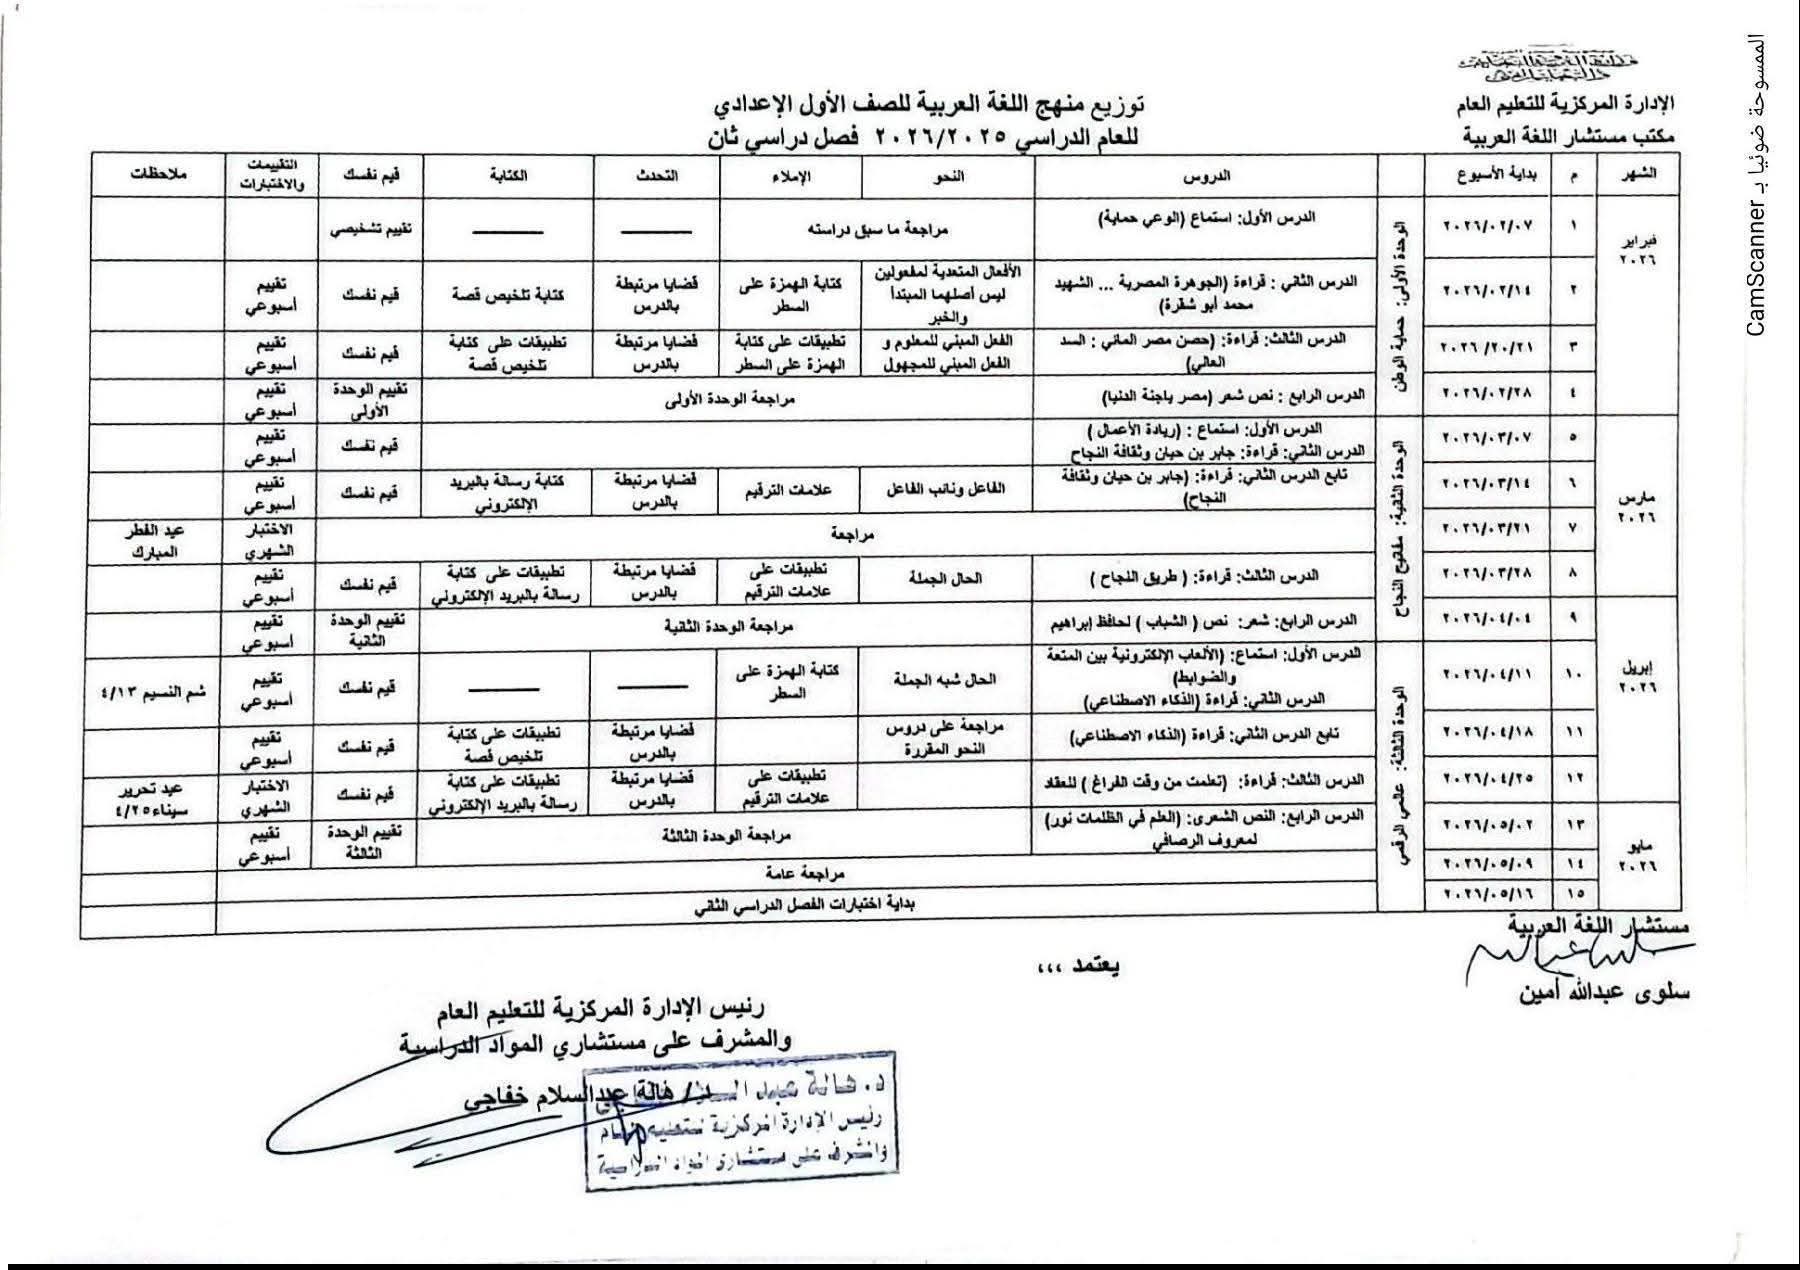 الممسوحة ضوئيا بـ CamScanner
الإدارة المركزية للتعليم العام
مكتب مستشار اللغة العربية
توزيع منهج اللغة العربية للصف الأول الإعدادي
للعام الدراسي ٢٠٢٦/٢٠٢٥ فصل دراسي ثان
الشهر م بداية الأسبوع الدروس النحو الإملاء التحدث الكتابة قيم نفسك التقييمات والاختبارات ملاحظات
فبراير ٢٠٢٦
الوحدة الأولى: حماية الوطن
١ ٢٠٢٦/٠٢/٠٧ الدرس الأول: استماع (الوعي حماية) مراجعة ما سبق دراسته تقييم تشخيصي
٢ ٢٠٢٦/٠٢/١٤ الدرس الثاني : قراءة (الجوهرة المصرية ... الشهيد محمد أبو شقرة) الأفعال المتعدية لمفعولين ليس أصلهما المبتدأ والخبر كتابة الهمزة على السطر قضايا مرتبطة بالدرس كتابة تلخيص قصة قيم نفسك تقييم أسبوعي
٣ ٢٠٢٦/٢٠/٢١ الدرس الثالث: قراءة: (حصن مصر المائي : السد العالي) الفعل المبني للمعلوم و الفعل المبني للمجهول تطبيقات على كتابة الهمزة على السطر قضايا مرتبطة بالدرس تطبيقات على كتابة تلخيص قصة قيم نفسك تقييم أسبوعي
٤ ٢٠٢٦/٠٢/٢٨ الدرس الرابع : نص شعر (مصر ياجنة الدنيا) مراجعة الوحدة الأولى تقييم الوحدة الأولى تقييم أسبوعي
مارس ٢٠٢٦
الوحدة الثانية: مفاتيح النجاح
٥ ٢٠٢٦/٠٣/٠٧ الدرس الأول: استماع : (ريادة الأعمال ) الدرس الثاني: قراءة: جابر بن حيان وثقافة النجاح قيم نفسك تقييم أسبوعي
٦ ٢٠٢٦/٠٣/١٤ تابع الدرس الثاني: قراءة: (جابر بن حيان وثقافة النجاح) الفاعل ونائب الفاعل علامات الترقيم قضايا مرتبطة بالدرس كتابة رسالة بالبريد الإلكتروني قيم نفسك تقييم أسبوعي
٧ ٢٠٢٦/٠٣/٢١ مراجعة الاختبار الشهري عيد الفطر المبارك
٨ ٢٠٢٦/٠٣/٢٨ الدرس الثالث: قراءة: ( طريق النجاح ) الحال الجملة تطبيقات على علامات الترقيم قضايا مرتبطة بالدرس تطبيقات على كتابة رسالة بالبريد الإلكتروني قيم نفسك تقييم أسبوعي
إبريل ٢٠٢٦
٩ ٢٠٢٦/٠٤/٠٤ الدرس الرابع: شعر: نص ( الشباب ) لحافظ إبراهيم مراجعة الوحدة الثانية تقييم الوحدة الثانية تقييم أسبوعي
الوحدة الثالثة: عالمي الرقمي
١٠ ٢٠٢٦/٠٤/١١ الدرس الأول: استماع: (الألعاب الإلكترونية بين المتعة والضوابط) الدرس الثاني: قراءة (الذكاء الاصطناعي) الحال شبه الجملة كتابة الهمزة على السطر قيم نفسك تقييم أسبوعي شم النسيم ٤/١٣
١١ ٢٠٢٦/٠٤/١٨ تابع الدرس الثاني: قراءة (الذكاء الاصطناعي) مراجعة على دروس النحو المقررة قضايا مرتبطة بالدرس تطبيقات على كتابة تلخيص قصة قيم نفسك تقييم أسبوعي
١٢ ٢٠٢٦/٠٤/٢٥ الدرس الثالث: قراءة: (تعلمت من وقت الفراغ ) للعقاد تطبيقات على علامات الترقيم قضايا مرتبطة بالدرس تطبيقات على كتابة رسالة بالبريد الإلكتروني قيم نفسك الاختبار الشهري عيد تحرير سيناء ٤/٢٥
مايو ٢٠٢٦
١٣ ٢٠٢٦/٠٥/٠٢ الدرس الرابع: النص الشعرى: (العلم في الظلمات نور) لمعروف الرصافي مراجعة الوحدة الثالثة تقييم الوحدة الثالثة تقييم أسبوعي
١٤ ٢٠٢٦/٠٥/٠٩ مراجعة عامة
١٥ ٢٠٢٦/٠٥/١٦ بداية اختبارات الفصل الدراسي الثاني
مستشار اللغة العربية
سلوى عبدالله أمين
يعتمد ،،،
رئيس الإدارة المركزية للتعليم العام
والمشرف على مستشاري المواد الدراسية
د/ هالة عبدالسلام خفاجي
د. هالة عبد السلام خفاجي
رئيس الإدارة المركزية للتعليم العام
والمشرف على مستشاري المواد الدراسية